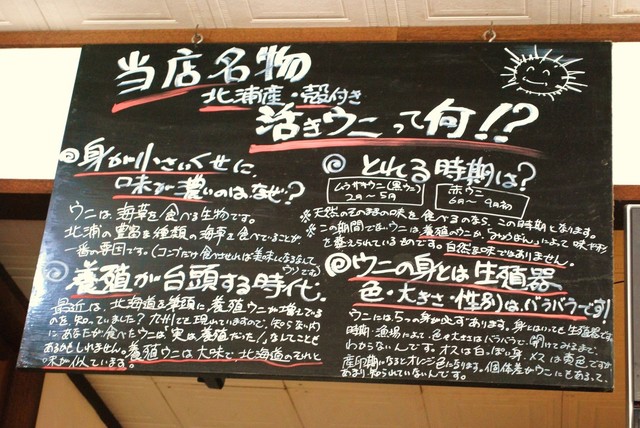 当店名物
北浦産・殻付き
活きウニって何!!?
身が小さいくせに、
味が濃いのは、なぜ?
ウニは海草を食べる生物です。
北浦の豊富な種類の海草を食べていることが
一番の要因です。(コンブだけ食べさせれば美味しくなるなんて
ウソです)
養殖が台頭する時代。
最近は、北海道を筆頭に養殖ウニが増えている
のを、知っていました?九州でも現れていますので、知らない内
にあなたが食べたウニは「実は養殖だった!」なんてことも
あるかもしれません。養殖ウニは大味で、北海道のそれと
味が似ています。
とれる時期は?
ムラサキウニ(黒ウニ)
2月〜5月
赤ウニ
6月〜9月初
※天然のそのままの味を食べるのなら、この時期となります。
※この期間でないウニは養殖のウニか、みょうばんによって味や形
を整えられているものです。自然な味ではありません。
ウニの身とは生殖器
色・大きさ・性別は、バラバラです!
ウニには5つの身が必ずあります。身とはいっても生殖器です。
時期・漁場によって色や大きさはバラバラで、開けてみるまで、
わからないんです。オスは白っぽい身、メスは黄色ですが
産卵期になるとオレンジ色になります。個体差がウニにもあるって、
あまり知られていないんです。